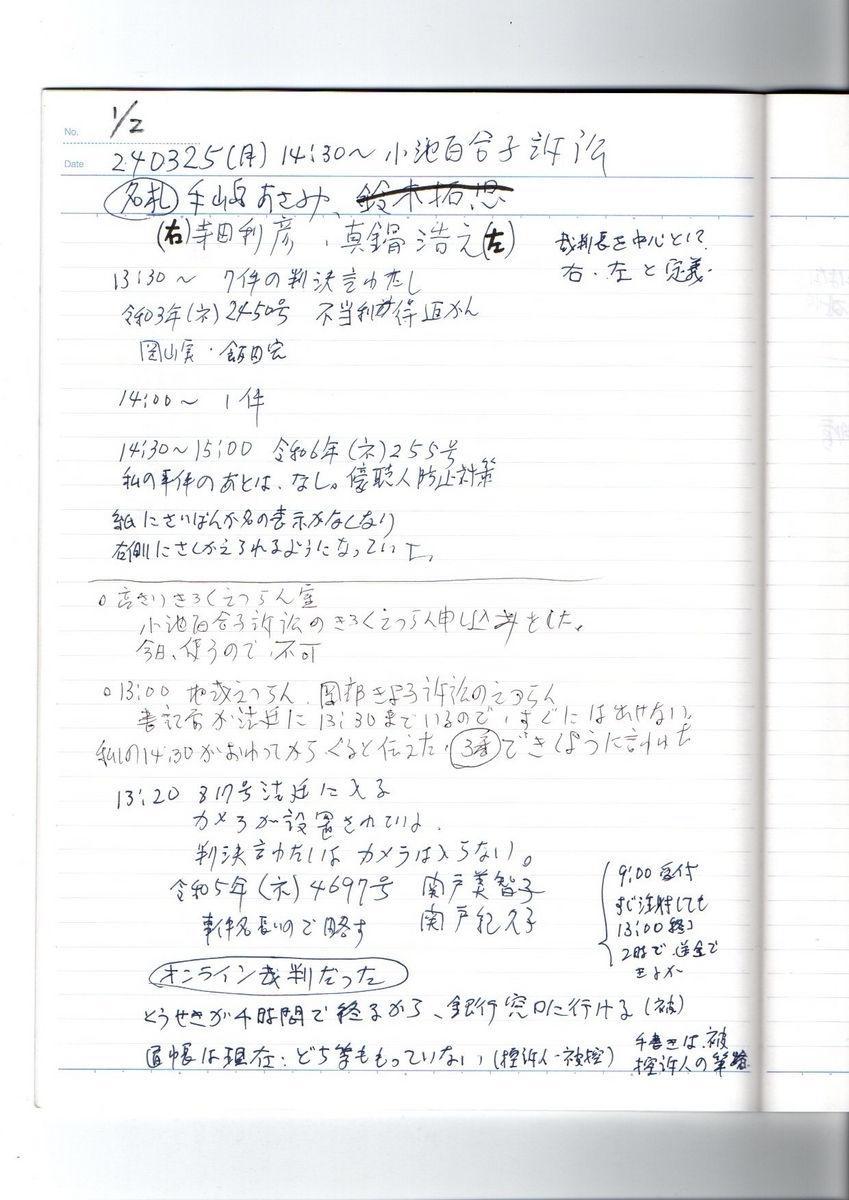 No. 1/2
Date 240325(月) 14:30〜 小池百合子訴訟
名札 手嶋あさみ、鈴木拓児
(右)寺田利彦、真鍋浩之(左)
裁判長を中心として
右・左と定義.
13:30〜 7件の判決言わたし
令和03年(ネ)2450号 不当利得返かん
岡山実・飯田宏
14:00〜 1件
14:30〜15:00 令和6年(ネ)255号
私の事件のあとは、なし。傍聴人防止対策
紙にさいばんか名の表示がなくなり
右側にさしかえられるようになっていて、
○高さいきろくえつらん室
小池百合子訴訟のきろくえつらん申し込みをした。
今日、使うので、不可
○13:00 地裁えつらん、岡部きよ子訴訟のえつらん
書記官が法廷に13:30までいるので、すぐには出けない、
私しの14:30がおわってからくると伝えた、3番できくように言われた
13:20 817号法廷に入る
カメラが設置されている.
判決言わたしはカメラは入らない。
令和5年(ネ)4697号 関戸美智子
事件名長いので略す 関戸紀久子
9:00 受付
すぐ注射しても
13:00 終り
2時で 送金で
きるか
オンライン裁判だった
とうせきが4時間で終るから、銀行窓口に行ける(被)
通帳は現在:どち等ももっていない(控訴人-被控)
手書きは、被
控訴人の筆跡